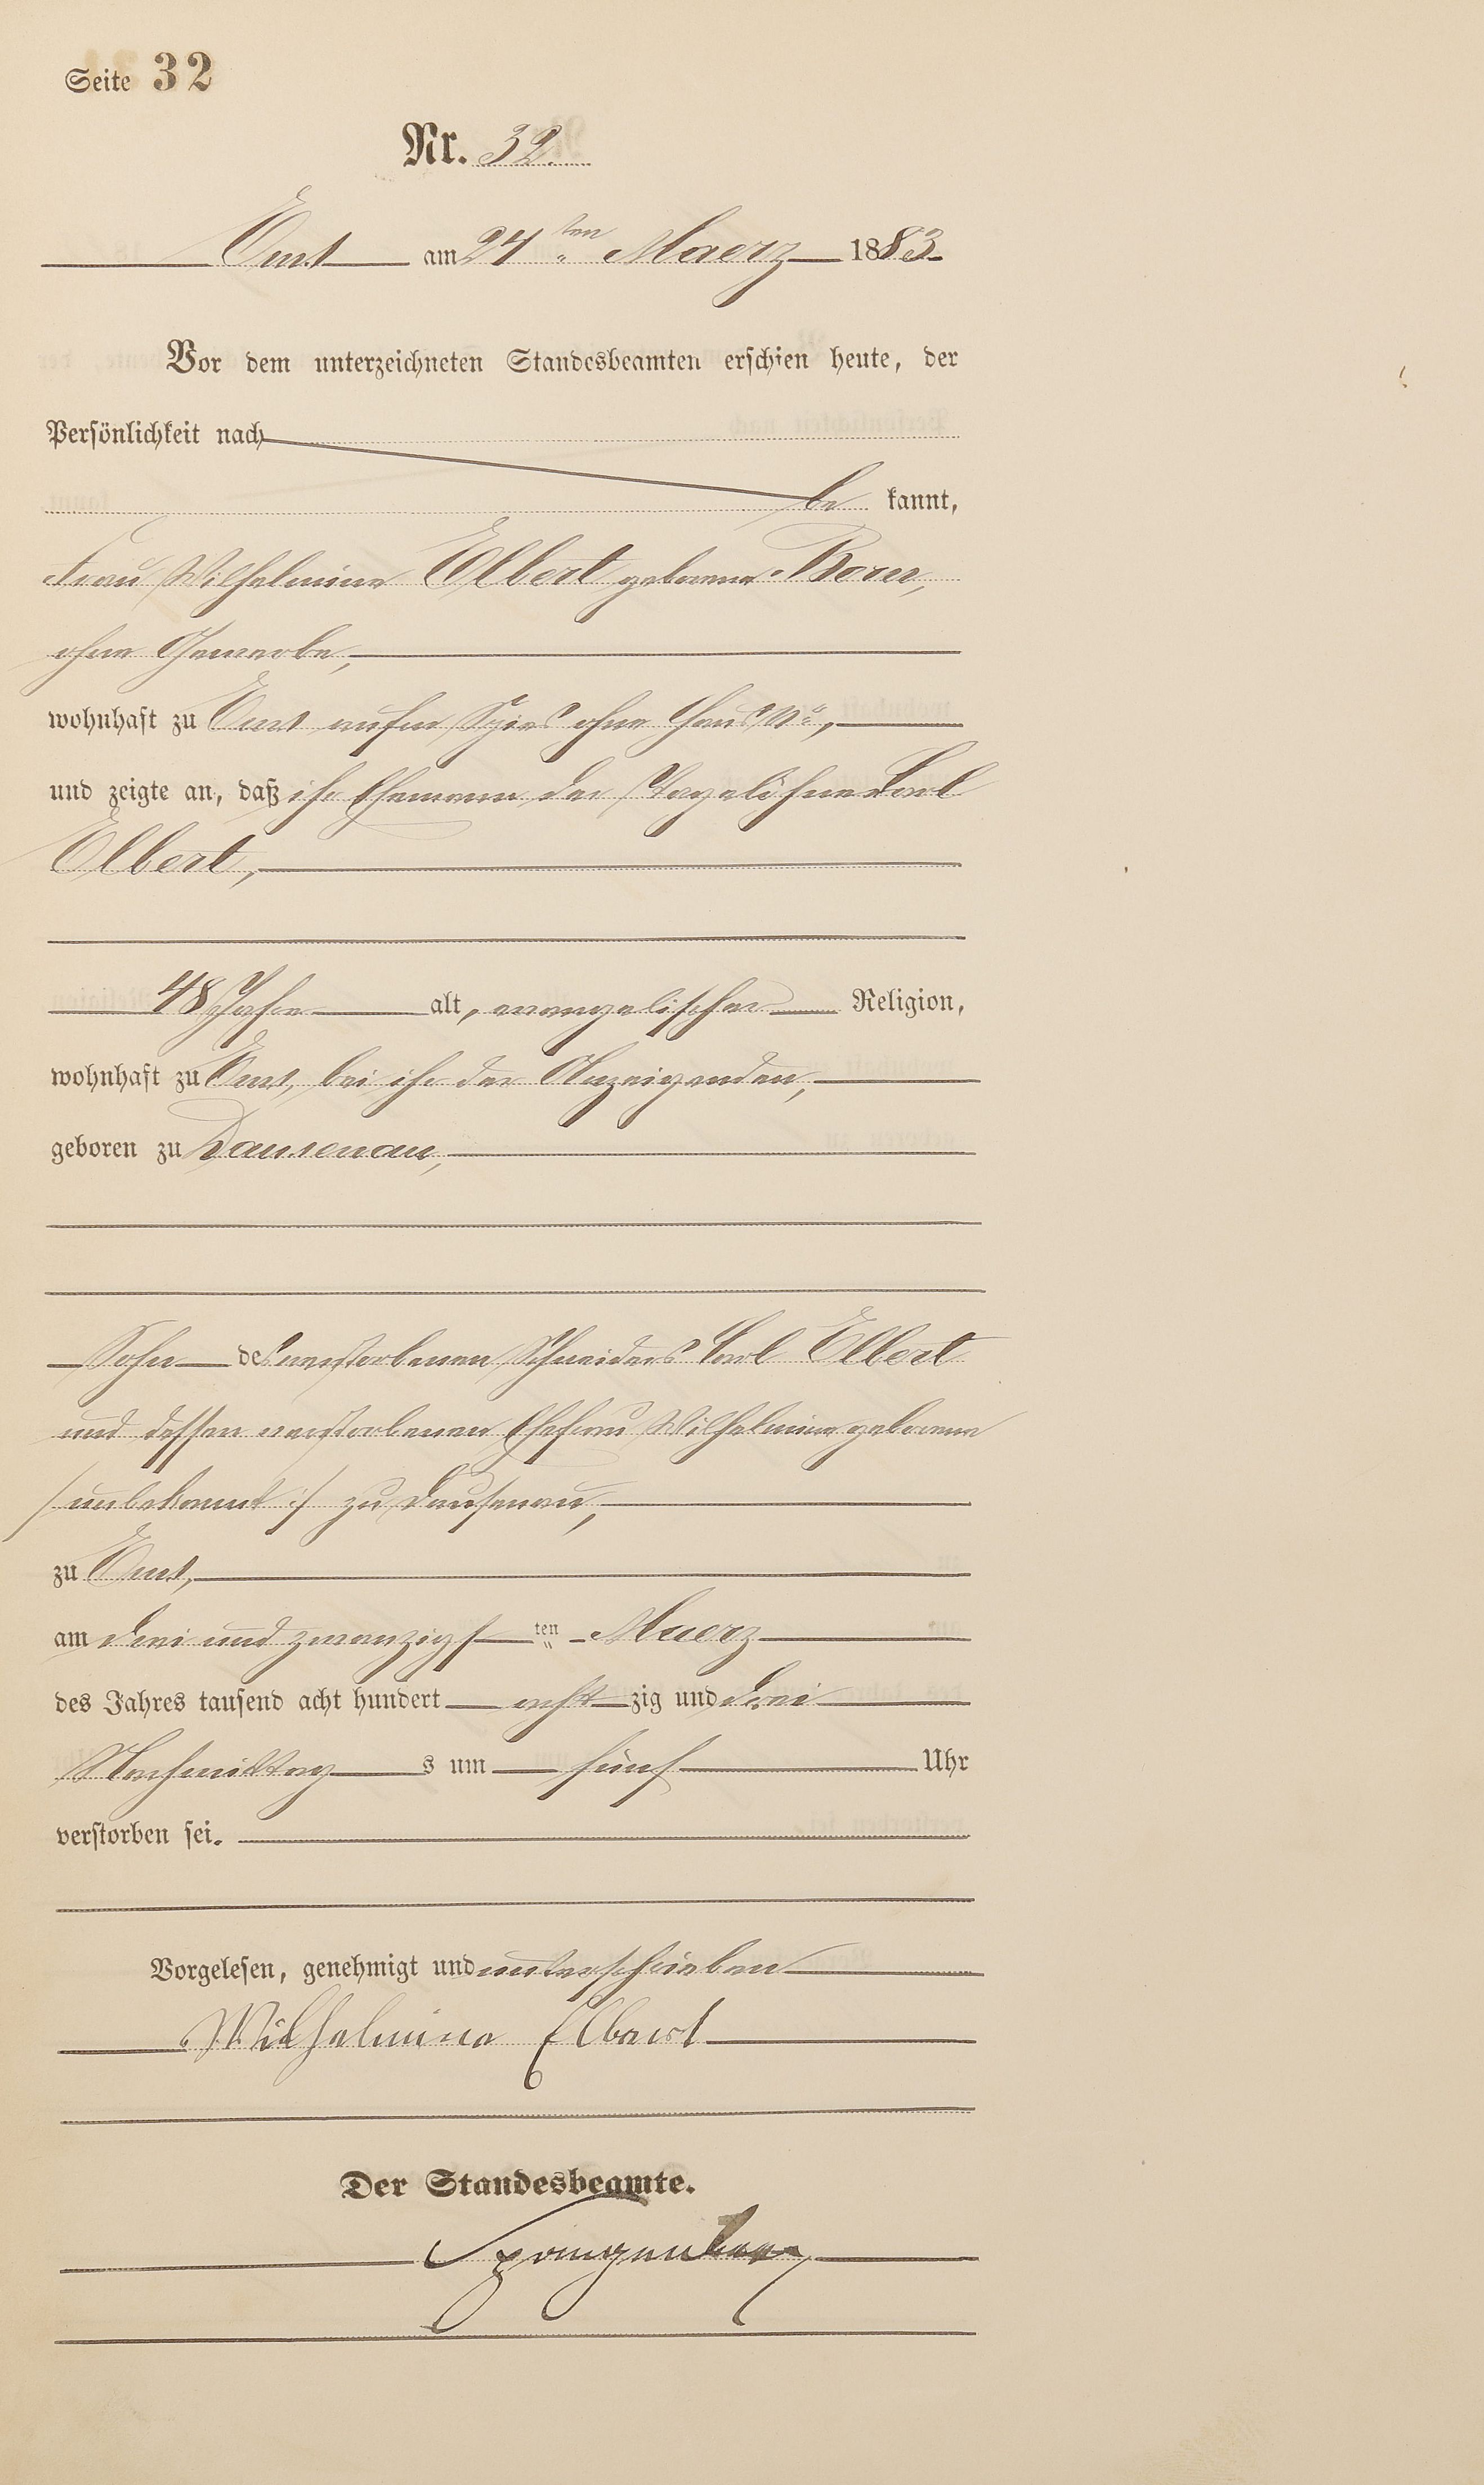 Seite 32
Nr. 32.
Ems am 24ten Maerz 1883
Vor dem unterzeichneten Standesbeamten erschien heute, der
Persönlichkeit nach
be kannt,
Frau Wilhelmine Elbert geborene Born,
ohne Gewerbe,
wohnhaft zu Ems aufm Spies ohne Haus No,
und zeigte an, daß ihr Ehemann der Tagelöhner Carl
Elbert,
48 Jahre alt, evangelischer Religion,
wohnhaft zu Ems, bei ihr der Anzeigenden,
geboren zu Dausenau,
Sohn des verstorbenen Schneiders Carl Elbert
und dessen verstorbenen Ehefrau Wilhelmine geborene
/: unbekannt :/ zu Dausenau,
zu Ems,
am drei und zwanzigs ten Maerz
des Jahres tausend acht hundert acht zig und drei
Nachmittag s um fünf Uhr
verstorben sei.
Vorgelesen, genehmigt und unterschrieben
Wilhelmine Elbert
Der Standesbeamte.
Spangenberg